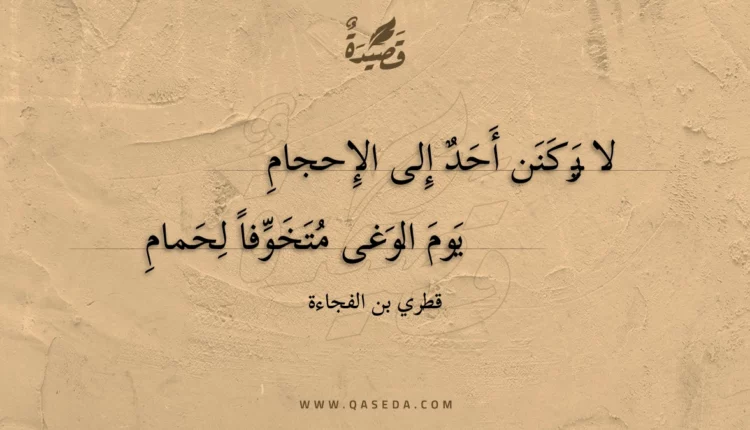 قَصِيدَةٌ
لا يَركَنَن أَحَدٌ إِلى الإِحجامِ
يَومَ الوَغى مُتَخَوِّفاً لِحَمامِ
قطري بن الفجاءة
WWW.QASEDA.COM